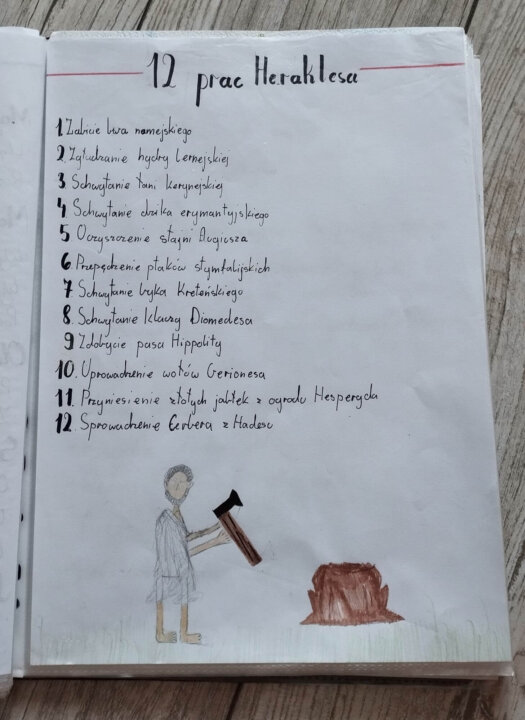 12 prac Heraklesa
1. Zabicie lwa nemejskiego
2. Zgładzenie hydry lernejskiej
3. Schwytanie łani kerynejskiej
4. Schwytanie dzika erymantyjskiego
5 Oczyszczenie stajni Augiasza
6. Przepędzenie ptaków stymfalijskich
7 Schwytanie byka Kreteńskiego
8. Schwytanie klaczy Diomedesa
9 Zdobycie pasa Hippolity
10. Uprowadzenie wołów Gerionesa
11 Przyniesienie złotych jabłek z ogrodu Hesperyda
12. Sprowadzenie Cerbera z Hadesu